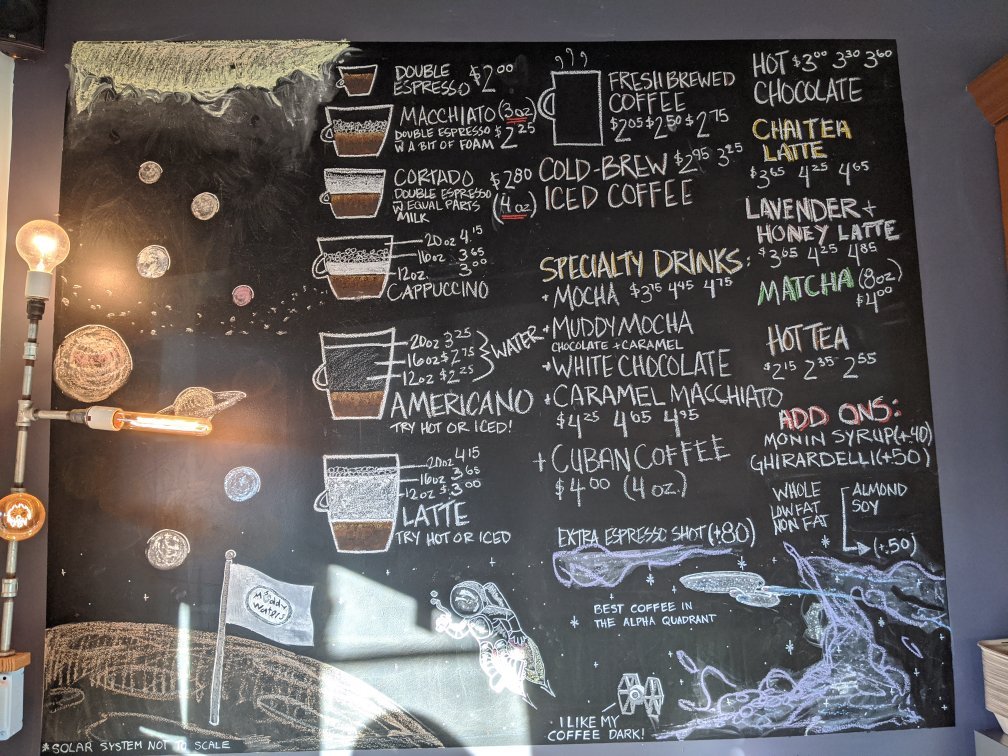 DOUBLE
ESPRESSO $2.00
MACCHIATO (3oz)
DOUBLE ESPRESSO $2.25
W A BIT OF FOAM
CORTADO $2.80
DOUBLE ESPRESSO
W EQUAL PARTS (4oz)
MILK
20oz 4.15
16oz 3.65
12oz 3.00
CAPPUCCINO
20oz 3.25
16oz $2.75
12oz $2.25
WATER
AMERICANO
TRY HOT OR ICED!
20oz 4.15
16oz 3.65
12oz $3.00
LATTE
TRY HOT OR ICED
Muddy
Waters
*SOLAR SYSTEM NOT TO SCALE
FRESH BREWED
COFFEE
$2.05 $2.50 $2.75
COLD-BREW $2.95 3.25
ICED COFFEE
SPECIALTY DRINKS:
MOCHA $3.75 4.45 4.75
MUDDY MOCHA
CHOCOLATE + CARAMEL
WHITE CHOCOLATE
CARAMEL MACCHIATO
$4.25 4.65 4.95
+ CUBAN COFFEE
$4.00 (4 oz.)
EXTRA ESPRESSO SHOT (+.80)
BEST COFFEE IN
THE ALPHA QUADRANT
I LIKE MY
COFFEE DARK!
HOT $3.00 3.30 3.60
CHOCOLATE
CHAI TEA
LATTE
$3.65 4.25 4.65
LAVENDER +
HONEY LATTE
$3.65 4.25 4.85
MATCHA (8oz)
$4.00
HOT TEA
$2.15 2.35 2.55
ADD ONS:
MONIN SYRUP (+.40)
GHIRARDELLI (+.50)
WHOLE
LOW FAT
NON FAT
ALMOND
SOY
(+.50)